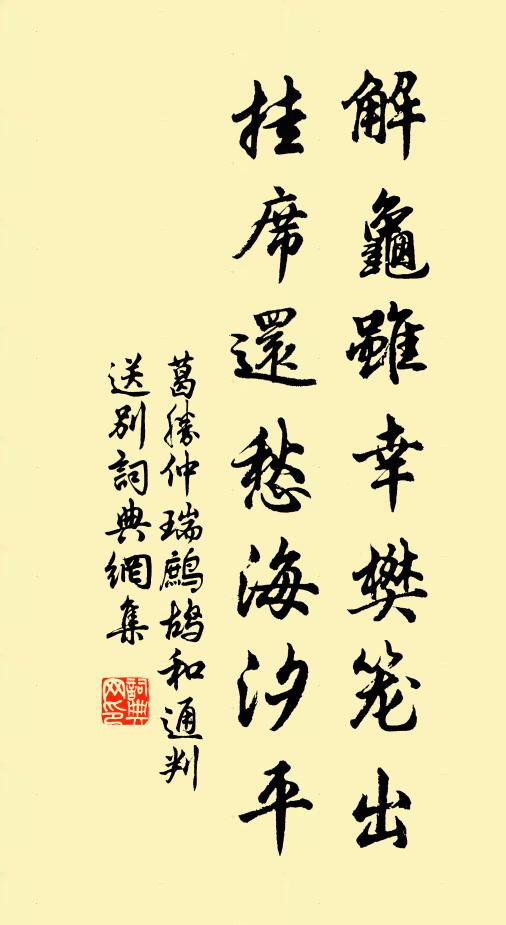 解龜雖幸樊笼出
挂席還愁海汐平
葛勝仲瑞鷓鴣和通判
送别詞典網集
詞典網印